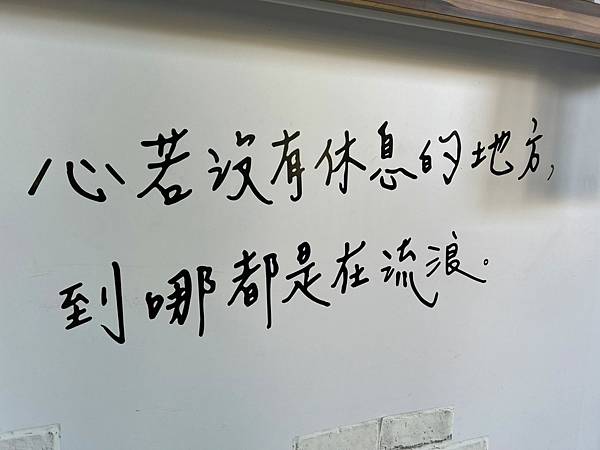 心若沒有休息的地方,
到哪都是在流浪。